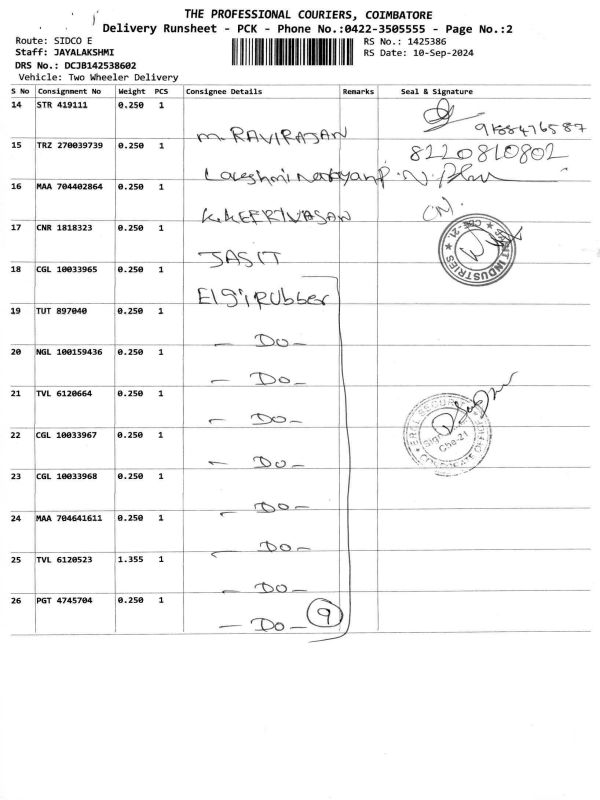 THE PROFESSIONAL COURIERS, COIMBATORE
Delivery Runsheet - PCK - Phone No.:0422-3505555 - Page No.:2
Route: SIDCO E RS No.: 1425386
Staff: JAYALAKSHMI RS Date: 10-Sep-2024
DRS No.: DCJB142538602
Vehicle: Two Wheeler Delivery
S No Consignment No Weight PCS Consignee Details Remarks Seal & Signature
14 STR 419111 0.250 1
M. RAVIRAJAN 9188476587
15 TRZ 270039739 0.250 1 8220810802
16 MAA 704402864 0.250 1
17 CNR 1818323 0.250 1
JASIT
INDUSTRIES
CBE-21.
18 CGL 10033965 0.250 1
Elgi Rubber
19 TUT 897040 0.250 1
- Do -
20 NGL 100159436 0.250 1
- Do -
21 TVL 6120664 0.250 1
- Do -
22 CGL 10033967 0.250 1
- Do -
Cbe-21
23 CGL 10033968 0.250 1
- Do -
24 MAA 704641611 0.250 1
- Do -
25 TVL 6120523 1.355 1
- Do -
26 PGT 4745704 0.250 1
- Do - 9